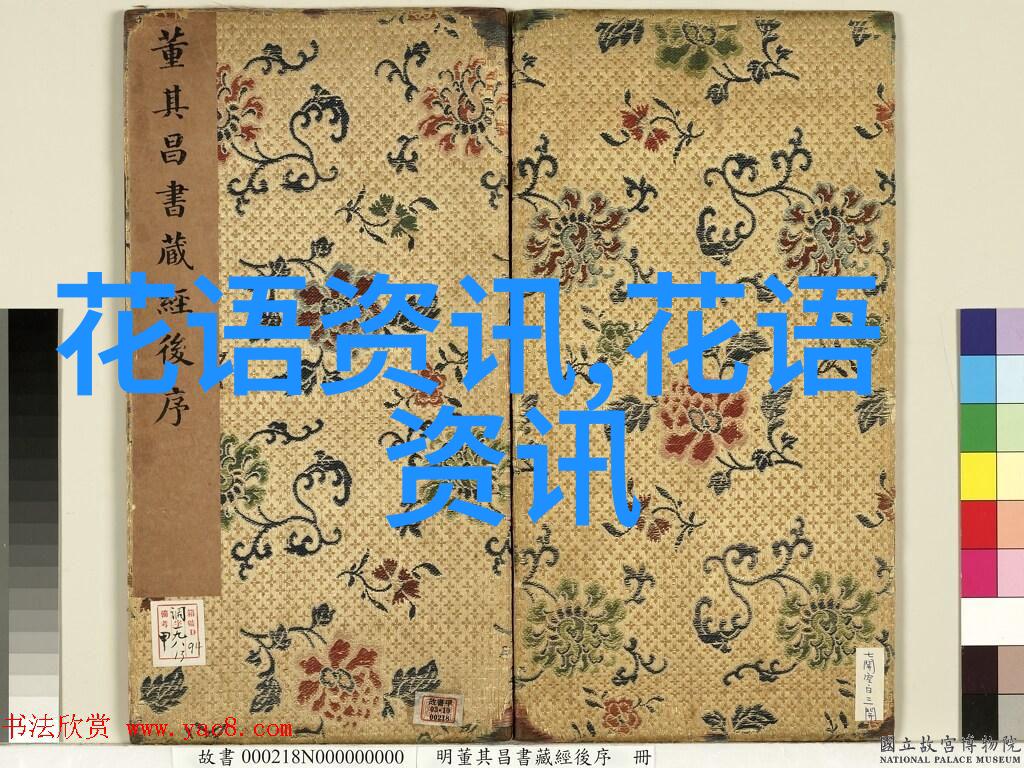 董其昌書藏經後序
花语资讯,花语
资讯
備考
箱號D
調一九八
甲
13
94
故書甲
03-10
00218
七開空白三開
书法欣赏 www.yac8.com
故書 000218N000000000 明董其昌書藏經後序 冊
國立故宮博物院
NATIONAL PALACE MUSEUM